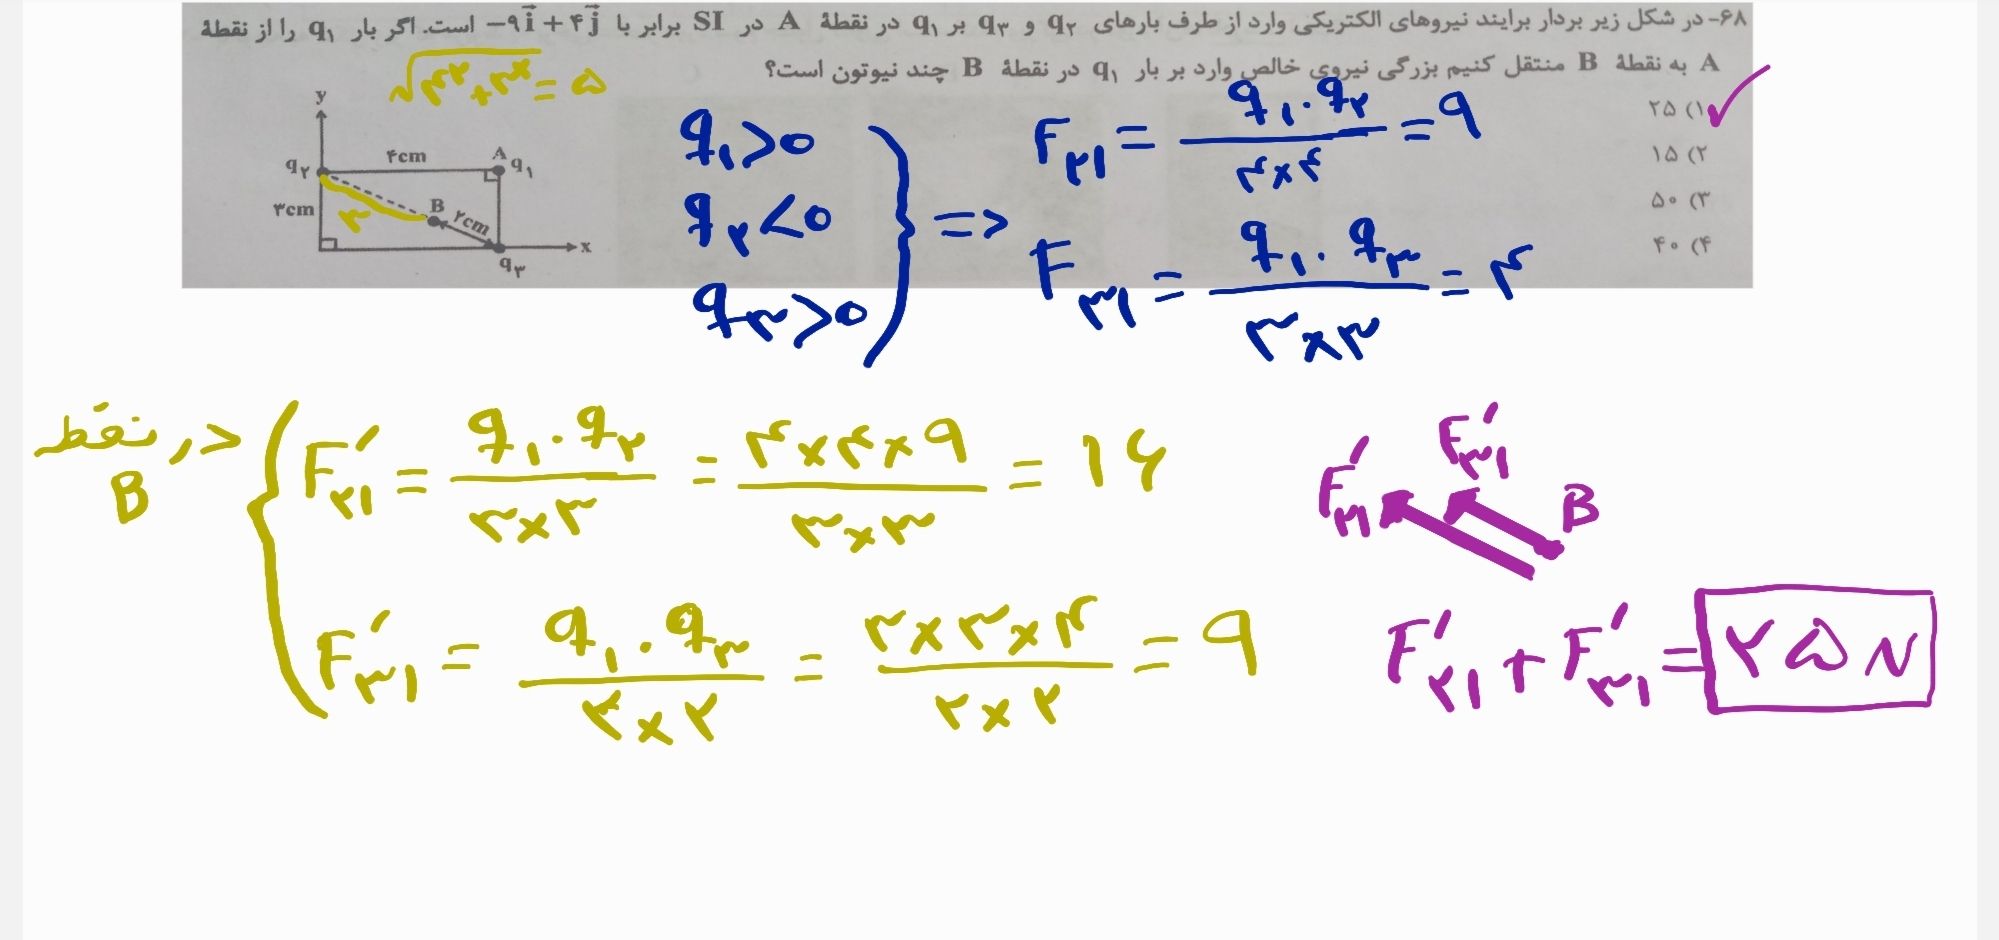 ۶۸- در شکل زیر بردار برایند نیروهای الکتریکی وارد از طرف بارهای q₂ و q₃ بر q₁ در نقطهٔ A در SI برابر با −۹i⃗ + ۴j⃗ است. اگر بار q₁ را از نقطهٔ
A به نقطهٔ B منتقل کنیم بزرگی نیروی خالص وارد بر بار q₁ در نقطهٔ B چند نیوتون است؟
۱) ۲۵ ✓
۲) ۱۵
۳) ۵۰
۴) ۴۰
√۴²+۳² = ۵
y
q₂ ۴cm A q₁
۳cm ۳ B ۲cm
x
q₃
q₁>0
q₂<0
q₃>0
=> F₂₁ = q₁.q₂ / ۴×۴ = ۹
F₃₁ = q₁.q₃ / ۳×۳ = ۴
در نقطه B
F′₂₁ = q₁.q₂ / ۳×۳ = ۴×۴×۹ / ۳×۳ = ۱۶
F′₃₁ = q₁.q₃ / ۲×۲ = ۳×۳×۴ / ۲×۲ = ۹
F′₂₁ F′₃₁ B
F′₂₁ + F′₃₁ = ۲۵ N